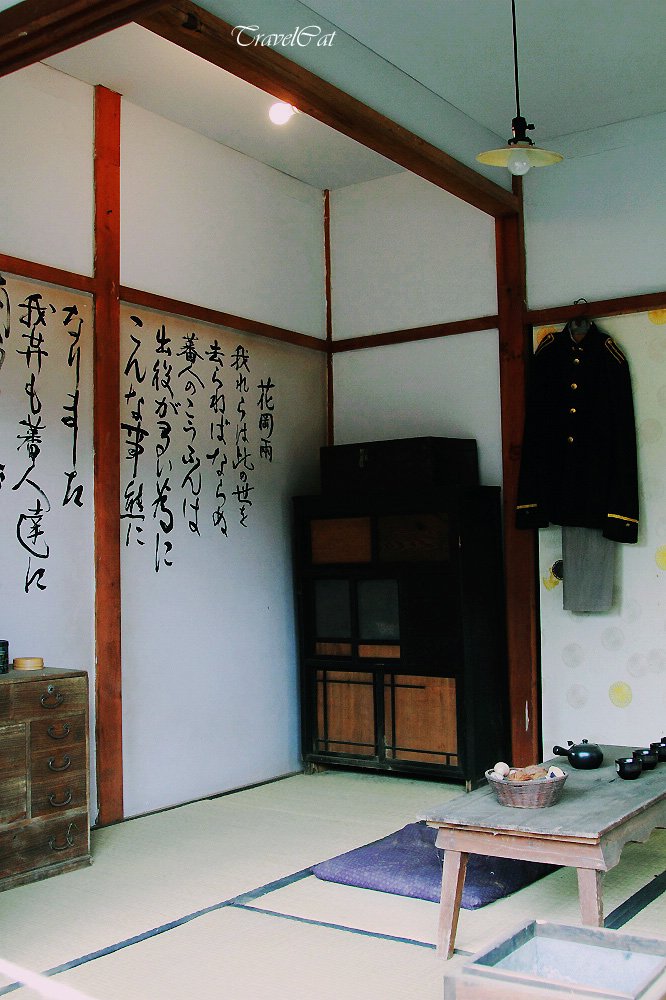 TravelCat
花岡兩
我れらは此の世を
去らねばならぬ
蕃人のこうふんは
出役が多い為に
こんな事態に
なりました
我等も蕃人達に